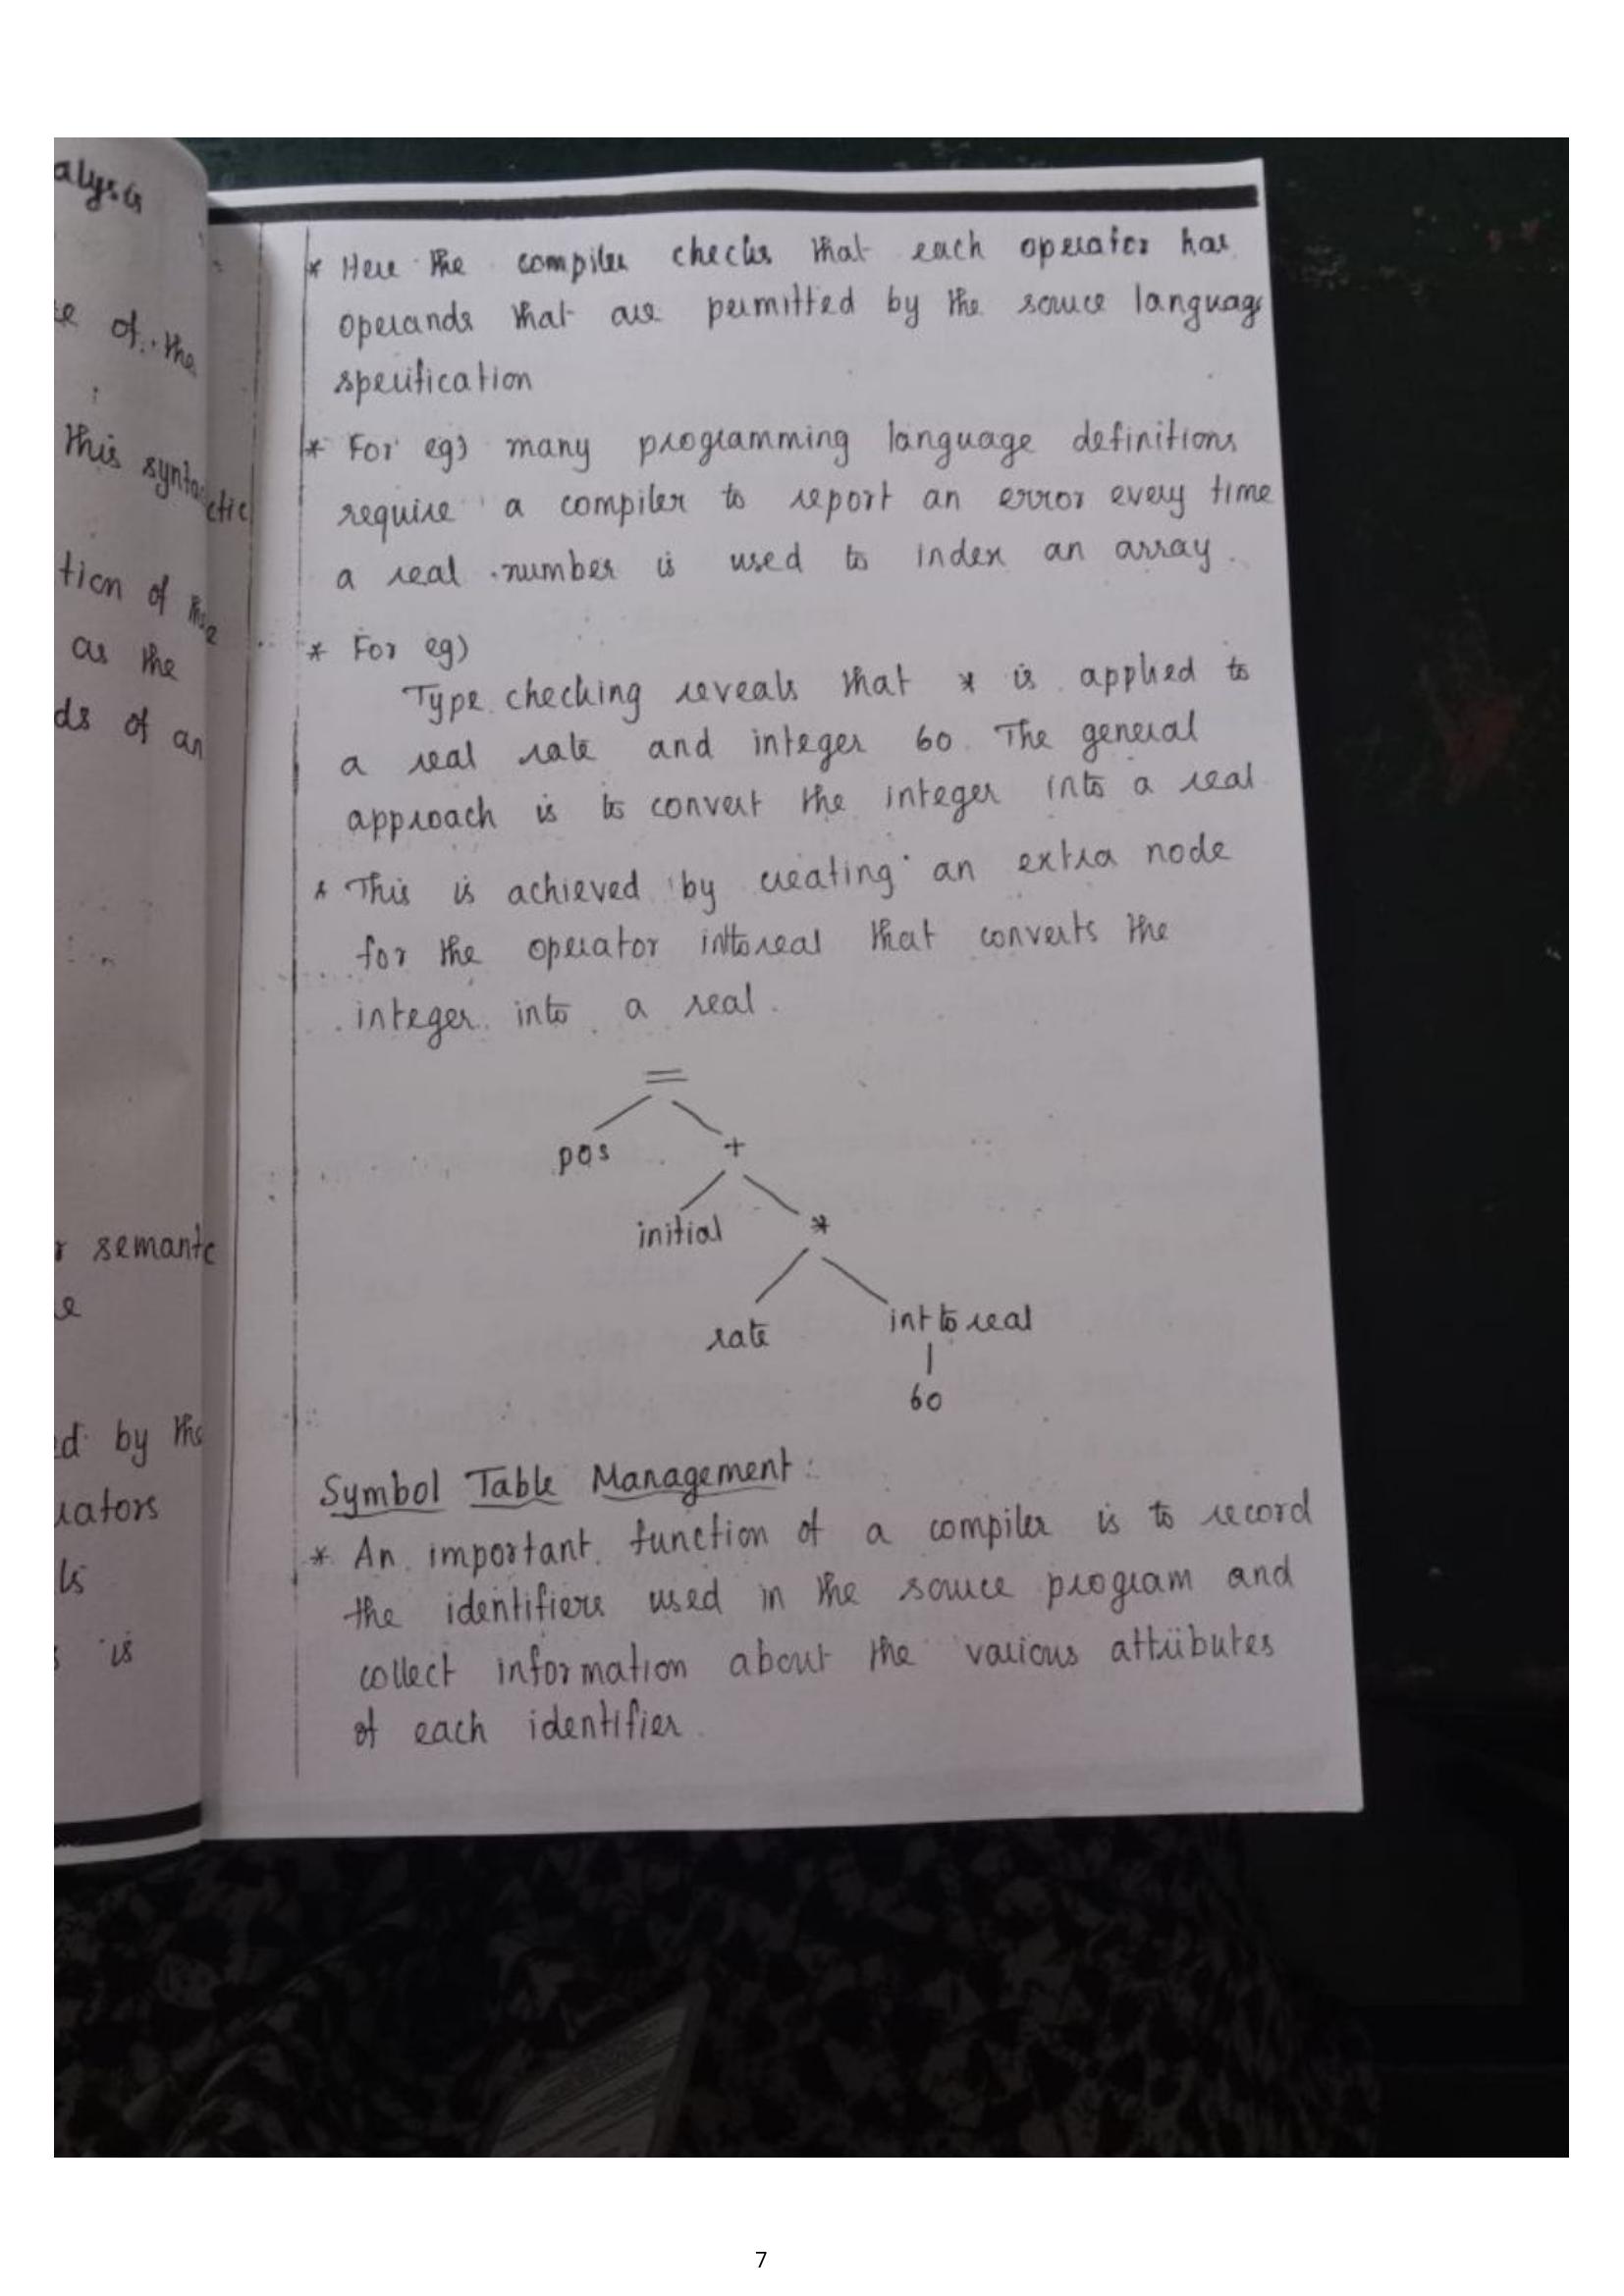 alysis
of the
this syntactic
tion of the
as the
ds of an
semantc
ed by the
uators
is
* Here the compiler checks that each operator has
operands that are permitted by the source language
specification
* For eg) many programming language definitions
require a compiler to report an error every time
a real number is used to index an array.
* For eg)
Type checking reveals that * is applied to
a real rate and integer 60. The general
approach is to convert the integer into a real
* This is achieved by creating an extra node
for the operator inttoreal that converts the
integer into a real.
=
pos +
initial *
rate int to real
60
Symbol Table Management:
* An important function of a compiler is to record
the identifiers used in the source program and
collect information about the various attributes
of each identifier.
7